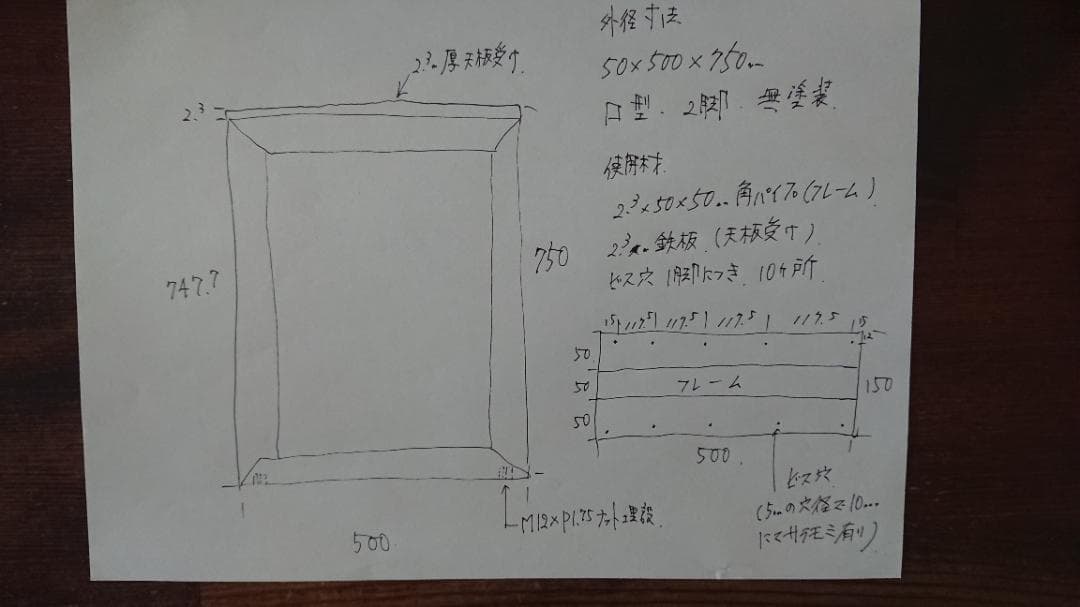 外径寸法
50×500×750mm
ロ型．2脚．無塗装．
使用材．
2.3×50×50mm角パイプ(フレーム)
2.3mm鉄板．(天板受け)
ビス穴 1脚につき．10ヶ所
2.3mm厚天板受け．
2.3
747.7
750
500
M12×P1.75ナット埋設．
15 117.5 117.5 117.5 117.5 15
12
50
50 フレーム
50
150
500．
ビス穴
(5mmの穴径で10mm
にてサラモミ有り)